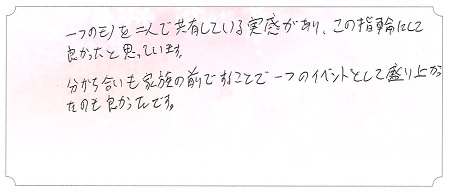 一つのモノを二人で共有している実感があり、この指輪にして
良かったと思っています。
分かち合いも家族の前ですることで一つのイベントとして盛り上がっ
たのも良かったです。